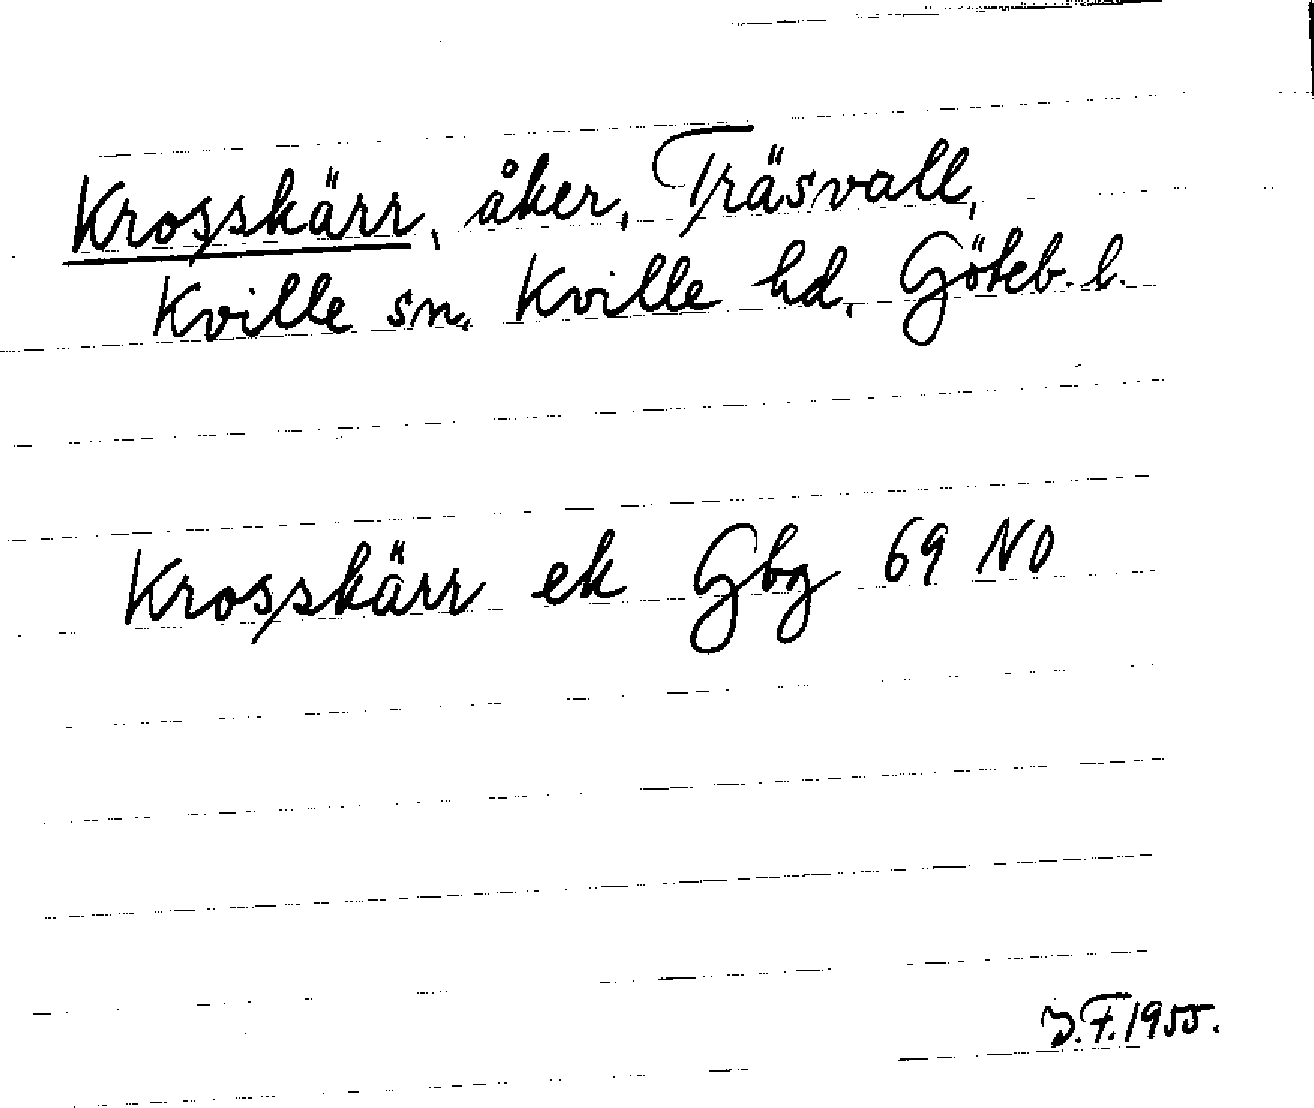 Krosskärr, åker, Träsvall,
Kville sn. Kville hd, Göteb. l.
Krosskärr ek Gbg 69 NO
J.F. 1955.